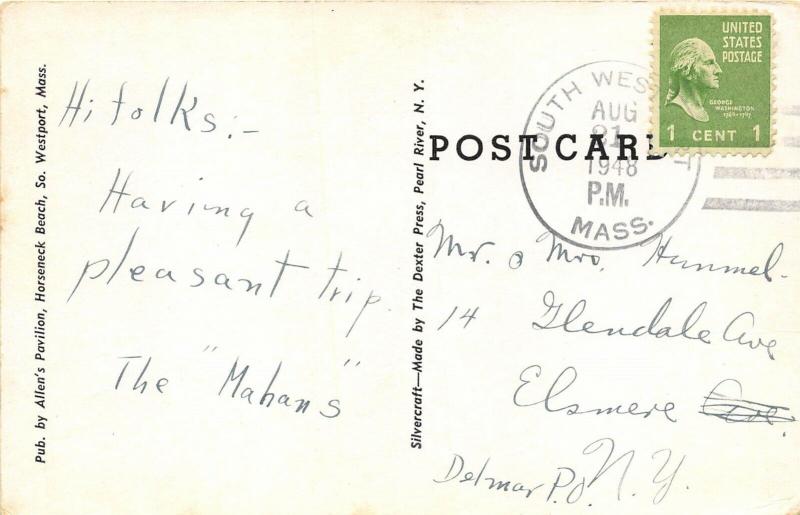 Pub. by Allen's Pavilion, Horseneck Beach, So. Westport, Mass.
Hi folks:-
Having a
pleasant trip.
The "Mahans"
Silvercraft—Made by The Dexter Press, Pearl River, N. Y.
POST CARD
SOUTH WES T
AUG
21
1948
P.M.
MASS.
UNITED
STATES
POSTAGE
GEORGE
WASHINGTON
1789-1797
1 CENT 1
Mr. & Mrs. Hummel.
14 Glendale Ave
Elsmere Ave.
Delmar P.O. N.Y.